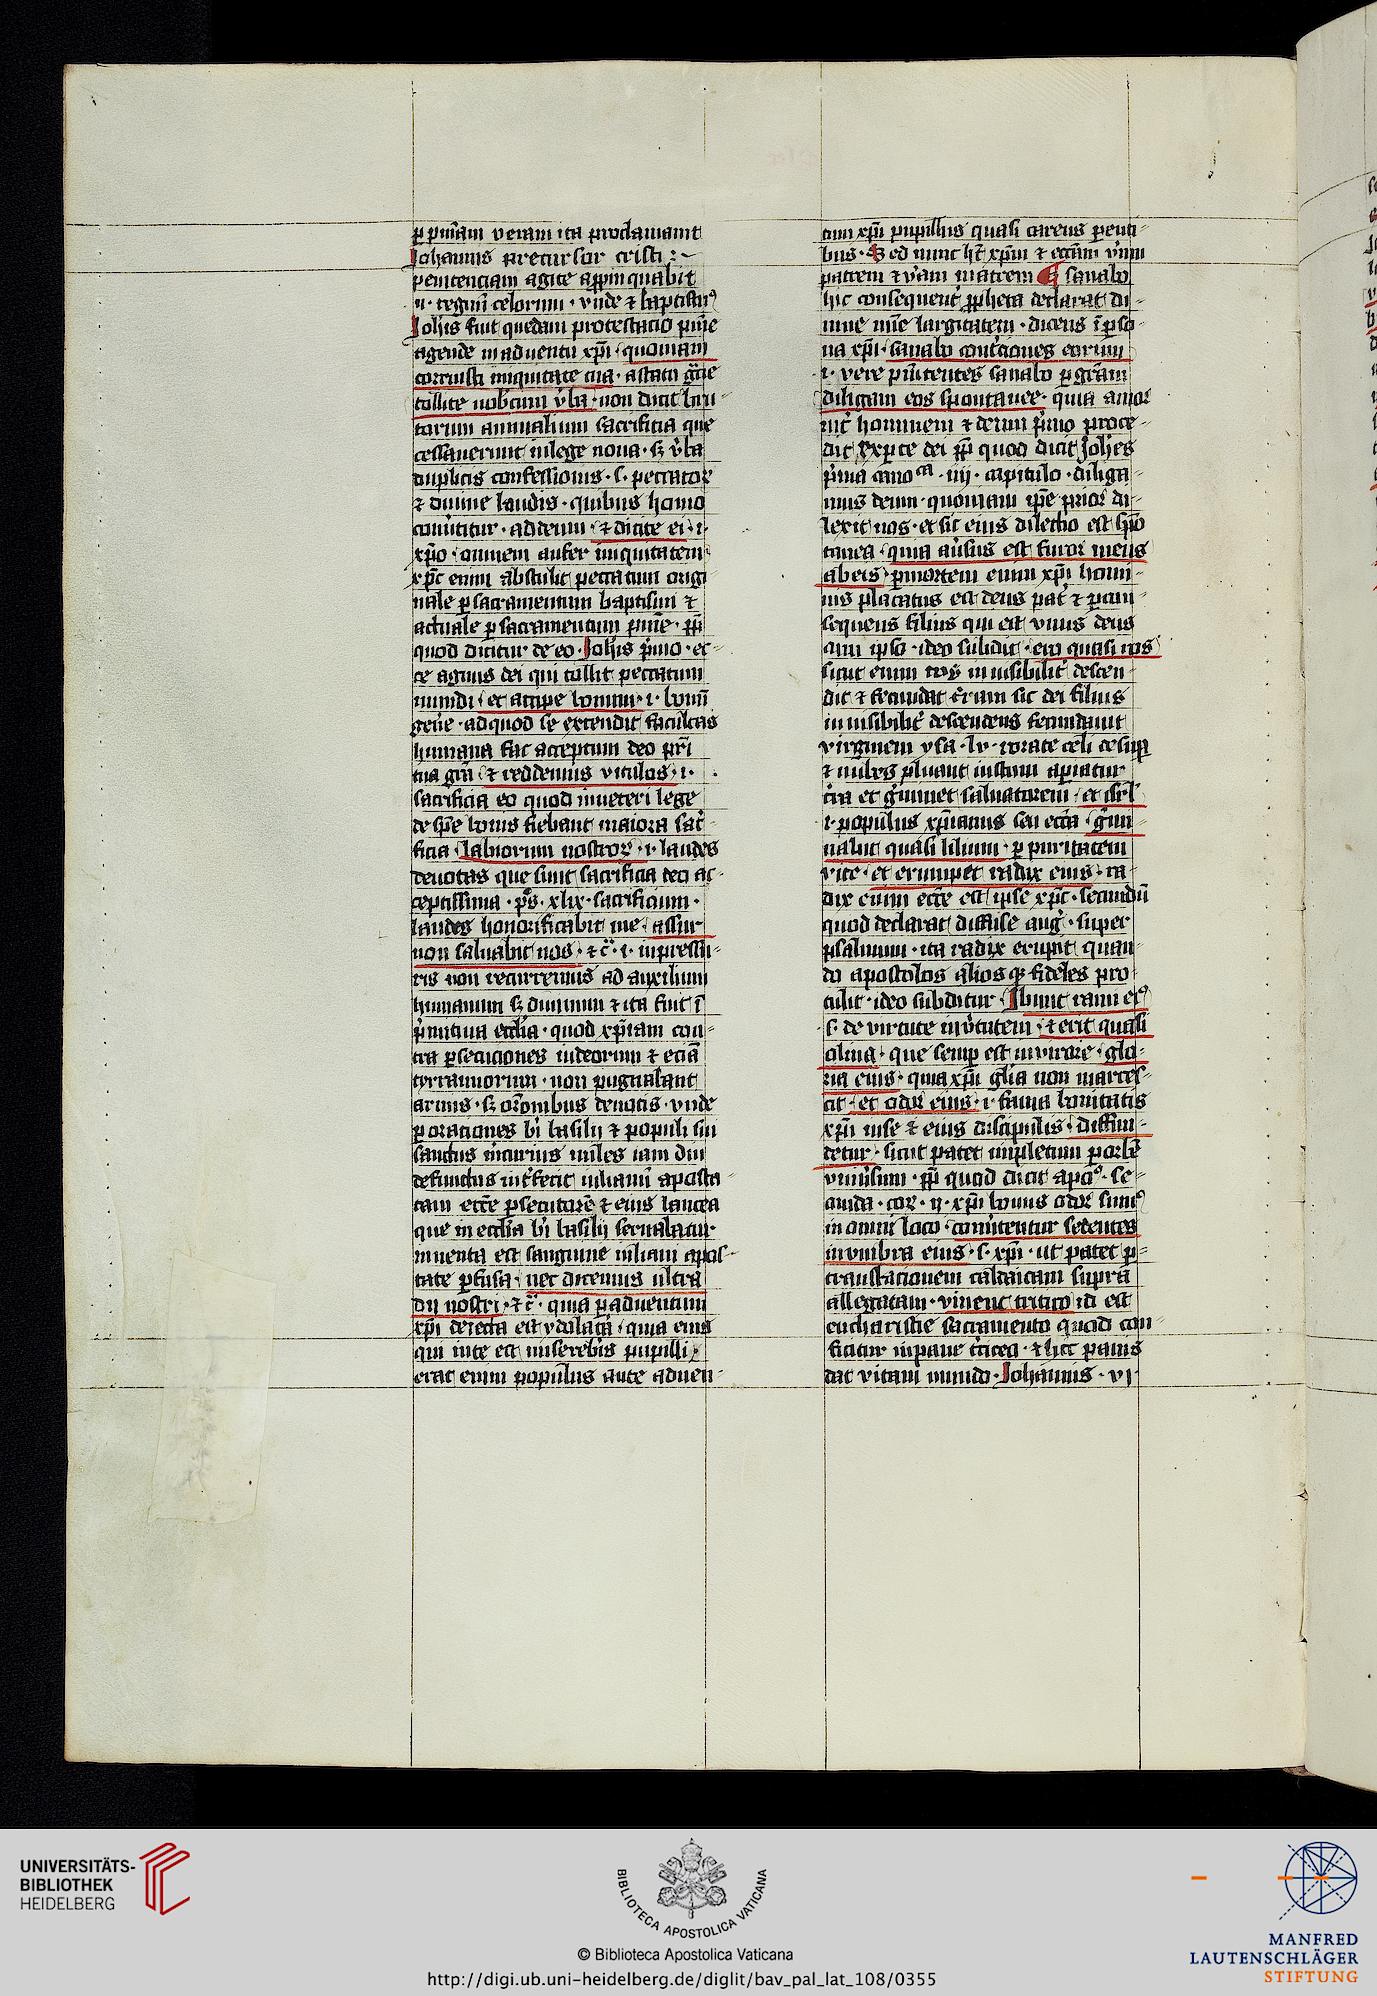 ꝑ pn̄iam veram ita proclamauit
Johannis precursor cristi :~
penitenciam agite appinquabit
.n. regnū celorum · vnde ⁊ baptismꝰ
Joh̄is fuit quedam protestacio pn̄ie
agende in aduentu xp̄i · quoniam
corruisti iniquitate tua · a statu gr̄cie
tollite uobiscum v̓ba · non dicit bru-
torum animalium sacrificia que
cessauerunt in lege noua · sꝫ v̓ba
duplicis confessionis · s· peccatoꝝ
⁊ diuine laudis · quibus homo
conu̓titur · ad deum · ⁊ dicite ei · i·
xp̄o · omnem aufer iniquitatem
xp̄c enim abstulit peccatum origi-
nale ꝑ sacramentum baptismi ⁊
actuale ꝑ sacramentum pn̄ie · ꝓp̄t
quod dicitur de eo · Joh̄is p̓mo · ec-
ce agnus dei qui tollit peccatum
mundi · et accipe bonum · i· bonū
gen̄e · ad quod se extendit facultas
humana fac acceptum deo pr̄i
tua gr̄a · ⁊ reddemus vitulos · i·
sacrificia eo quod in ueteri lege
de sp̄e bouis fiebant maiora sac̓-
ficia · labiorum nostroꝝ · i· laudes
deuotas que sunt sacrificia deo ac-
ceptissima · ps̄ · xlix · sacrificium ·
laudes honorificabit me · assur
non saluabit nos · ⁊c̄ · i· in pressu-
ris non recurremus ad auxilium
humanum sꝫ diuinum ⁊ ita fuit ī
p̓mitiua ecclīa · quod xp̄iani con-
tra ꝑsecuciones iudeorum ⁊ eciā
tyrannorum · non pugnabant
armis · sꝫ or̄onibus deuotis · vnde
ꝑ oraciones bī basilij ⁊ populi sui
sanctus m̓curius miles iam diu
defunctus int̓fecit iulianū aposta-
tam ecc̄e ꝑsecutorē ⁊ eius lancea
que in ecclīa bī basilij seruabatur
inuenta est sanguine iuliani apos-
tate ꝑfusa · nec dicemus ultra
dij nostri · ⁊c̄ · quia ꝑ aduentum
xp̄i deiecta est ydolat̓a · quia eius
qui in te est misereb̓is pupilli ·
erat enim populus ante aduen-
tum xp̄i pupillus quasi carens parenti-
bus · Sed nunc hꝫ xp̄m ⁊ ecc̄am vn̄m
patrem ⁊ vn̄am matrem ¶ sanabo
hic consequent̓ ꝓpheta declarat di-
uine mīe largitatem · dicens ī ꝑso-
na xp̄i · sanabo contriciones eorum
i· vere pn̄itentes sanabo ꝑ gr̄am
diligam eos spontanee · quia amor
int̓ hominem ⁊ deum p̓mo proce-
dit ex ꝑte dei ꝓp̄t quod dicit Joh̄es
p̓ma cano͡ca · iiij · capitulo · diliga-
mus deum · quoniam ip̄e prior di-
lexit nos · et sic eius dilectio est spō-
tanea · quia auersus est furor meus
ab eis · ꝑ mortem enim xp̄i homi-
nis placatus est deus pat̓ ⁊ ꝑ con-
sequens filius qui est vnus deus
cum ipso · ideo subdit · ero quasi ros
sicut enim ros inuisibilit̓ descen-
dit ⁊ fecundat t̓ram sic dei filius
inuisibilit̓ descendens fecundauit
virginem ysa · lv · rorate celi desuꝑ
⁊ nubes pluant iustum aperiatur
t̓ra et g̓minet saluatorem · et isrl̄
i· populus xp̄ianus seu ecc̄a · g̓mi-
nabit quasi lilium · ꝑ puritatem
vite · et erumpet radix eius · ra-
dix enim ecc̄e est ipse xp̄c · secundū
quod declarat diffuse aug̓ · super
psalmum · ita radix erupit quan-
do apostolos alios qꝫ fideles pro-
tulit · ideo subditur · Ibunt rami eiꝰ
s· de virtute in v̓tutem · ⁊ erit quasi
oliua · que semꝑ est in virore · glo-
ria eius · quia xp̄i glīa non marces-
cit · et odor eius · i· fama bonitatis
xp̄i in se ⁊ eius discipulis · diffun-
detur · sicut patet impletum ꝑ orbē
vniu̓sum · ꝓp̄t quod dicit apl̓s · se-
cunda · cor̓ · ij · xp̄i bonus odor sumꝰ
in omni loco · conu̓tentur sedentes
in vmbra eius · s· xp̄i · ut patet ꝑ
translacionem caldaicam supra
allegatam · viuent tritico id est
eucharistie sacramento quod con-
ficitur in pane t̓ticeo · ⁊ hic panis
dat vitam mundo · Johannis · vi·
UNIVERSITÄTS-
BIBLIOTHEK
HEIDELBERG
BIBLIOTECA APOSTOLICA VATICANA
© Biblioteca Apostolica Vaticana
http://digi.ub.uni-heidelberg.de/diglit/bav_pal_lat_108/0355
MANFRED
LAUTENSCHLÄGER
STIFTUNG